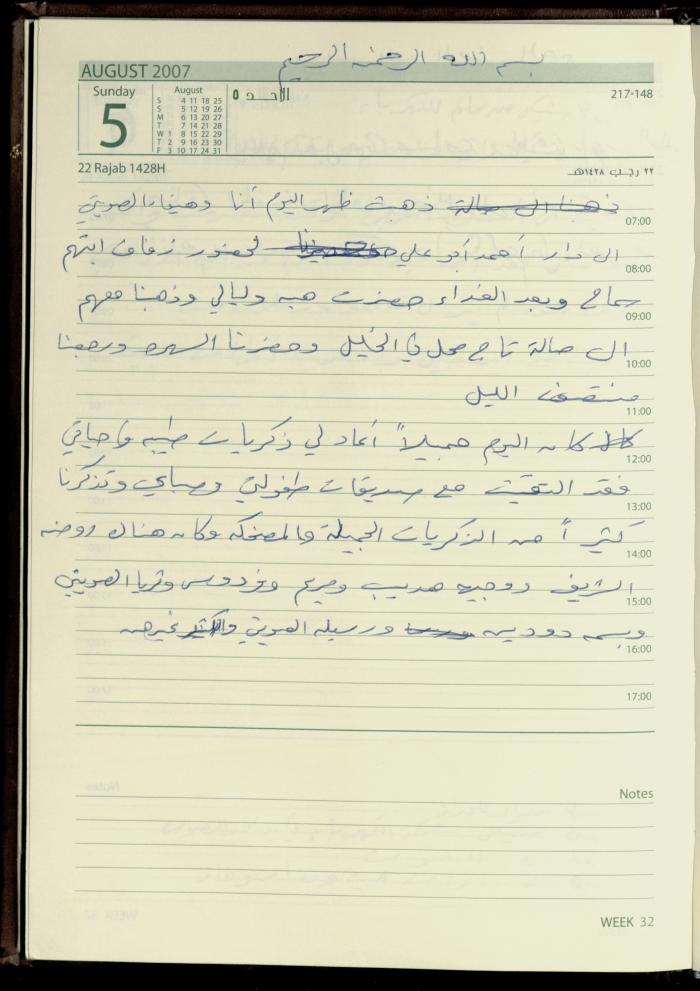 بسم الله الرحمن الرحيم
AUGUST 2007
Sunday
5
August
S 4 11 18 25
S 5 12 19 26
M 6 13 20 27
T 7 14 21 28
W 1 8 15 22 29
T 2 9 16 23 30
F 3 10 17 24 31
الأحد ٥
217-148
22 Rajab 1428H
٢٢ رجب ١٤٢٨هـ
ذهبنا الى صالة ذهبت ظهر اليوم أنا وهيفاء الصويتي
07:00
الى دار أحمد أبو علي لحضور زفاف ابنتهم
08:00
سماح وبعد الغداء حضرت هبه وليالي وذهبنا معهم
09:00
الى صالة تاج محل في الخليل وحضرنا السهره ورجعنا
10:00
منتصف الليل
11:00
كان اليوم جميلاً أعاد لي ذكريات طيبه في حياتي
12:00
فقد التقيت مع صديقات طفولتي وصباي وتذكرنا
13:00
كثيراً من الذكريات الجميلة والمضحكه وكان هناك روضه
14:00
الشريف ووجيه هديب ومريم وفردوس وثريا الصويتي
15:00
وبسمه دودين ورسيله الصويتي والكثير غيرهن
16:00
17:00
Notes
WEEK 32